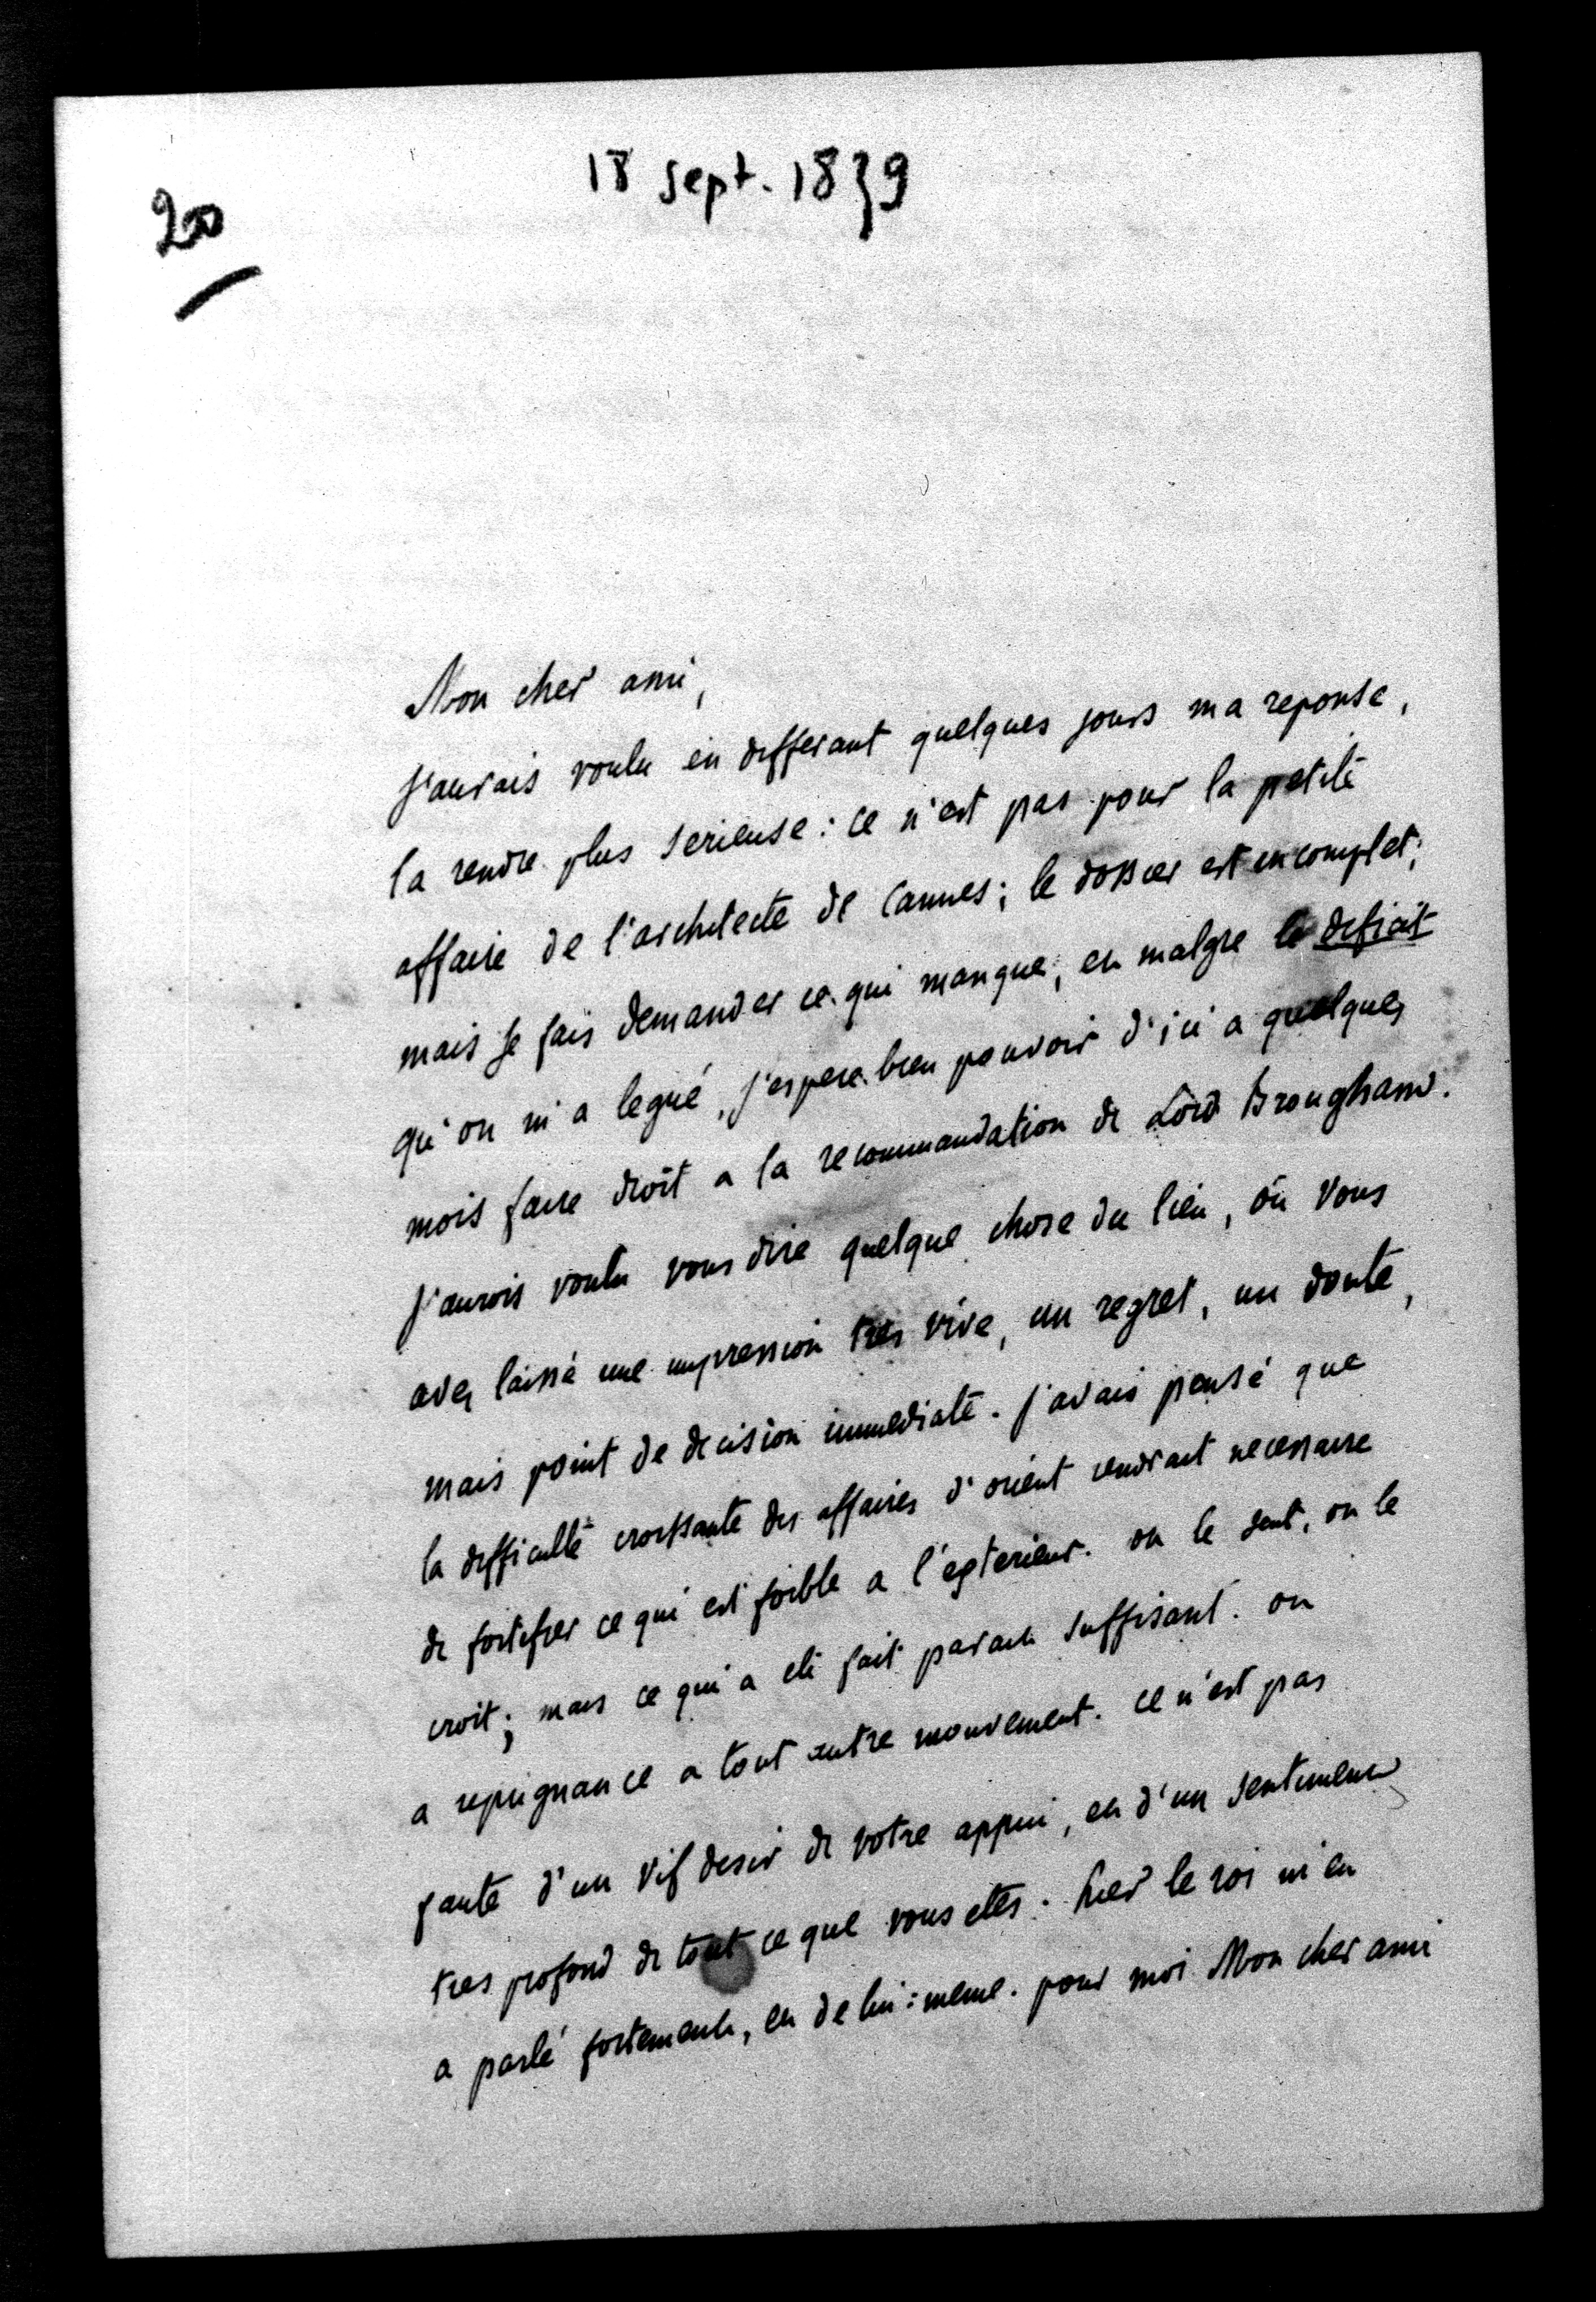 18 sept. 1839
200
Mon cher ami,
j'aurais voulu en differant quelques jours ma reponse,
la rendre plus serieuse : ce n'est pas pour la petite
affaire de l'architecte de Cannes ; le dossier est incomplet ;
mais je fais demander ce qui manque, en malgre le deficit
qu'on m'a legué, j'espere bien pouvoir d'ici a quelques
mois faire droit a la recommandation de Lord Brougham.
j'aurois voulu vous dire quelque chose du lieu, où vous
avez laissé une impression tres vive, un regret, un doute,
mais point de decision immediate. j'avais pensé que
la difficulté croissante des affaires d'orient rendrait necessaire
de fortifier ce qui est foible a l'exterieur. on le sent, on le
croit ; mais ce qui a eté fait parait suffisant. on
a repugnance a tout autre mouvement. ce n'est pas
faute d'un vif desir de votre appui, en d'un sentiment
tres profond de tout ce que vous etes. hier le roi m'en
a parlé fortement, en de lui=meme. pour moi Mon cher ami